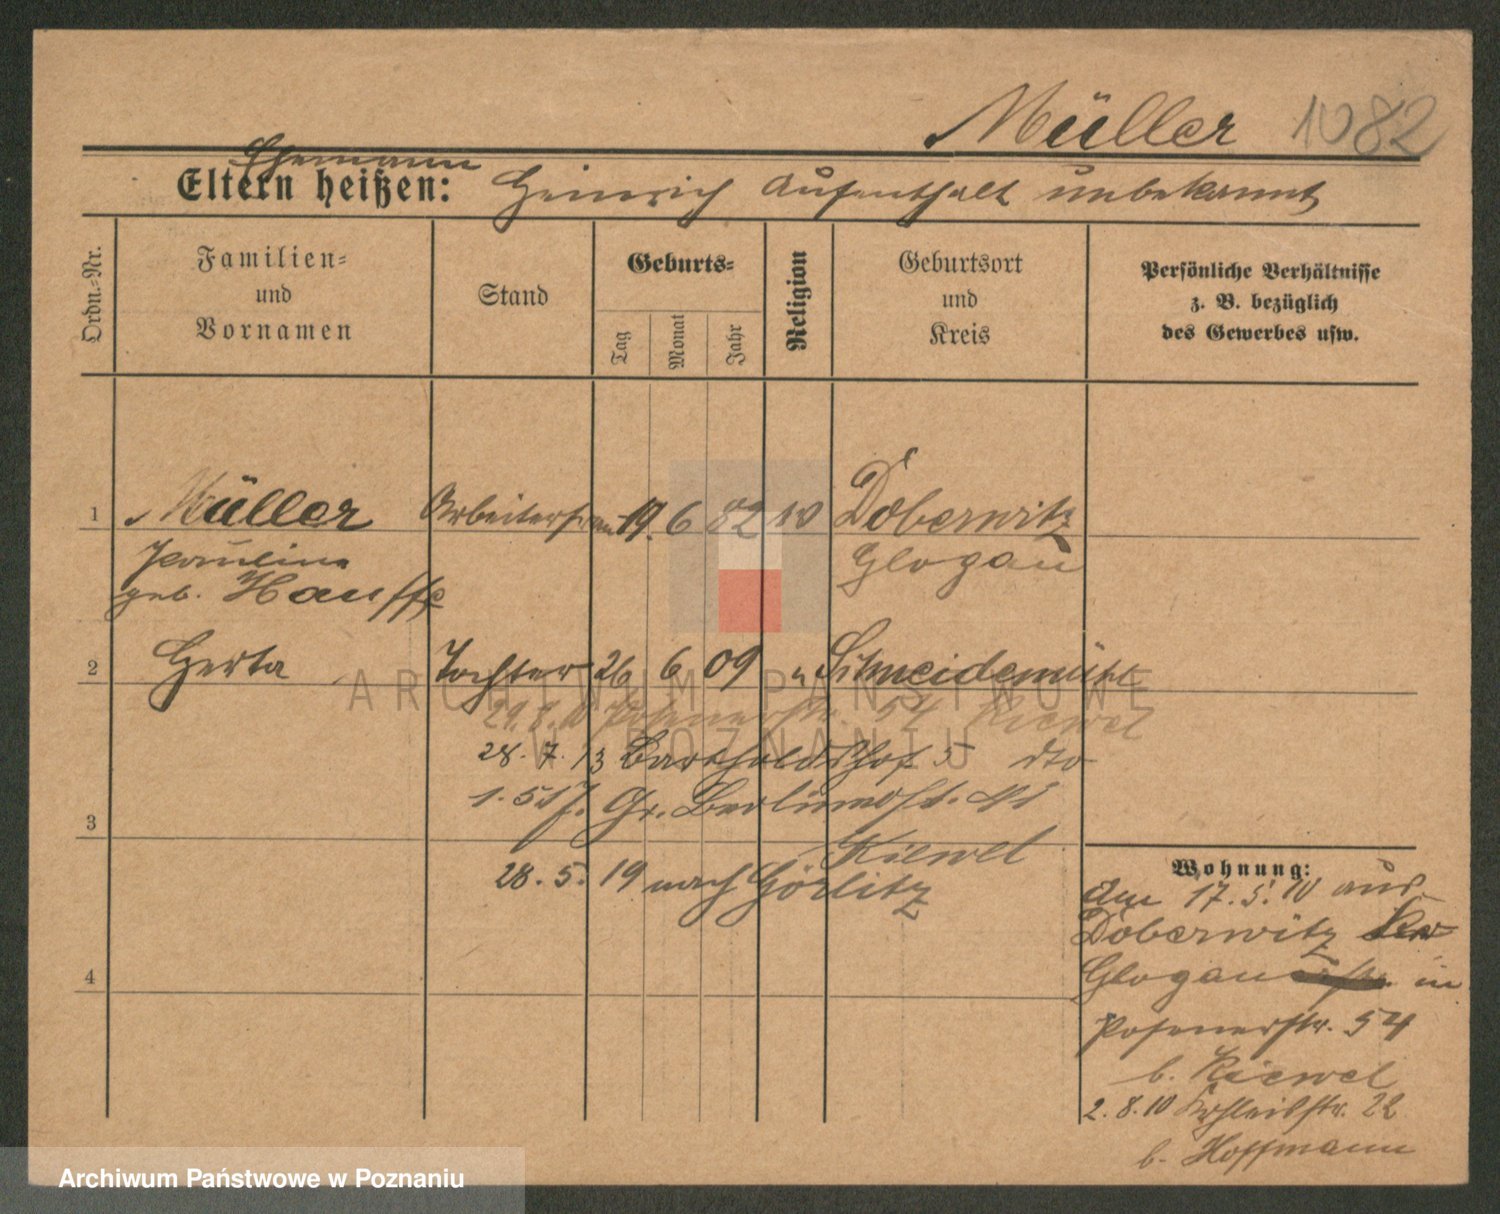 Müller 1082
Ehemann
Eltern heißen: Heinrich Aufenthalt unbekannt
Ordn.-Nr.
Familien-
und
Vornamen
Stand
Geburts-
Tag
Monat
Jahr
Religion
Geburtsort
und
Kreis
Persönliche Verhältnisse
z. B. bezüglich
des Gewerbes usw.
1 Müller Arbeiterfrau 19. 6 82 Doberwitz
Pauline Glogau
geb. Hauffe
2 Herta Tochter 26 6 09 " Schneidemühl
29.8.10 Posenerstr. 54 Kiewel
28.7.13 Bartholdshof 5 dto
Gr. Berlinerst.
3
Kiewel
28.5.19 nach Görlitz
4
Wohnung:
Am 17.5.10 aus
Doberwitz
Glogau in
Posenerstr. 54
b. Kiewel
2.8.10 22
b. Hoffmann
ARCHIWUM PAŃSTWOWE
W POZNANIU
Archiwum Państwowe w Poznaniu